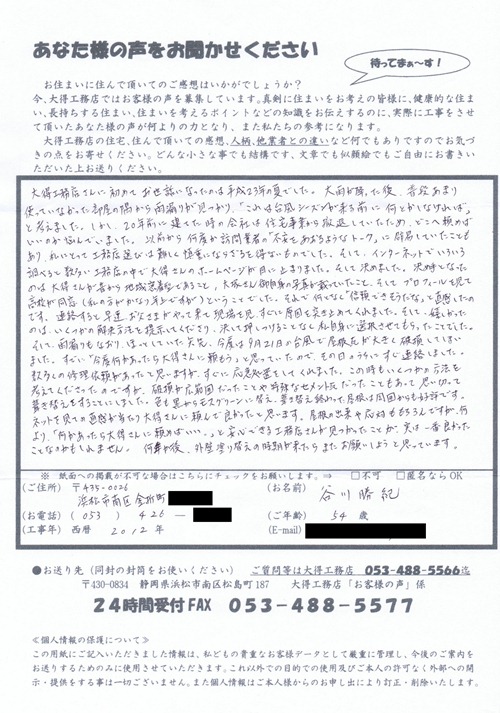 あなた様の声をお聞かせください
待ってまぁ〜す!
お住まいに住んで頂いてのご感想はいかがでしょうか?
今、大得工務店ではお客様の声を募集しています。真剣に住まいをお考えの皆様に、健康的な住ま
い、長持ちする住まい、住まいを考えるポイントなどの知識をお伝えするのに、実際に工事をさせ
て頂いたあなた様の声が何よりの力となり、また私たちの参考になります。
大得工務店の住宅、住んで頂いての感想、人柄、他業者との違いなど何でもありですのでお気づ
きの点をお寄せください。どんな小さな事でも結構です、文章でも似顔絵でもご自由にお書きい
ただいた上お送りください。
大得工務店さんに初めてお世話になったのは平成23年の夏でした。大雨が降った後、普段あまり
使っていなかった部屋の隅から雨漏りが見つかり、「これは台風シーズンが来る前に何とかしなければ」
と考えました。しかし、20年前に建てた時の会社は住宅事業から撤退していたため、どこへ頼めば
いいのか悩んでいました。以前から何度か訪問業者の「不安をあおるようなトーク」に辟易していたことも
あり、おいそれと工務店選びは難しく慎重にならざるを得ないものでした。そして、インターネットでいろいろ
調べると数多い工務店の中で大得さんのホームページが目にとまりました。そして決めました。決め手となった
のは大得さんが昔から地域密着であること、大塚さん御自身の写真が載っていたこと、そしてプロフィールを見て
高校が同窓(私の方がかなり年上ですが)ということでした。そして何となく“信頼できそうだな”と直感したの
です。連絡すると早速お父さまがやって来て現場を見、すぐに原因を突き止めてくれました。そして、嬉しかった
のは、いくつかの解決方法を提示してくださり、決して押しつけることなく私自身に選択させてもらったことでした。
そして雨漏りもなおり、ほっとしていた矢先、今度は9月21日の台風で屋根瓦が大きく破損してしまい
ました。すぐに「今度何かあったら大得さんに頼もう」と思っていたので、その日のうちにすぐ連絡しました。
数多くの修理依頼があったと思いますが、すぐに応急処置をしてくれました。この時もいくつかの方法を
考えてくださったのですが、破損が広範囲だったことや特殊なセメント瓦だったこともあって思い切って
葺き替えをすることにしました。色も黒からモスグリーンに替え、葺き替え終わった屋根は周囲からも好評です。
ネットを見ての直感が当たり大得さんに頼んで良かったと思います。屋根の出来や応対ももちろんですが、何
より、「何かあったら大得さんに頼めばいい。」と安心できる工務店さんが見つかったことが、実は一番良かった
ことなのかもしれません。何年か後、外壁塗り替えの時期が来たらまたお願いしようと思っています。
※ 紙面への掲載が不可な場合はこちらにチェックをお願いします。⇒ □不可 □匿名ならOK
(ご住所) 〒435-0026 (お名前) 谷川勝紀
浜松市南区金折町
(お電話) (053) 426 ― (ご年齢) 54 歳
(工事年) 西暦 2012年 (E-mail)
●お送り先(同封の封筒をお使いください) ご質問等は大得工務店 053-488-5566迄
〒430-0834 静岡県浜松市南区松島町187 大得工務店「お客様の声」係
24時間受付FAX 053-488-5577
≪個人情報の保護について≫
この用紙にご記入いただきました情報は、私どもの貴重なお客様データとして厳重に管理し、今後のご案内を
お送りするためのみに使用させていただきます。これ以外での目的での使用及びご本人の許可なく外部への開
示・提供をする事は一切ございません。また個人情報はご本人様からのお申し出により訂正・削除いたします。